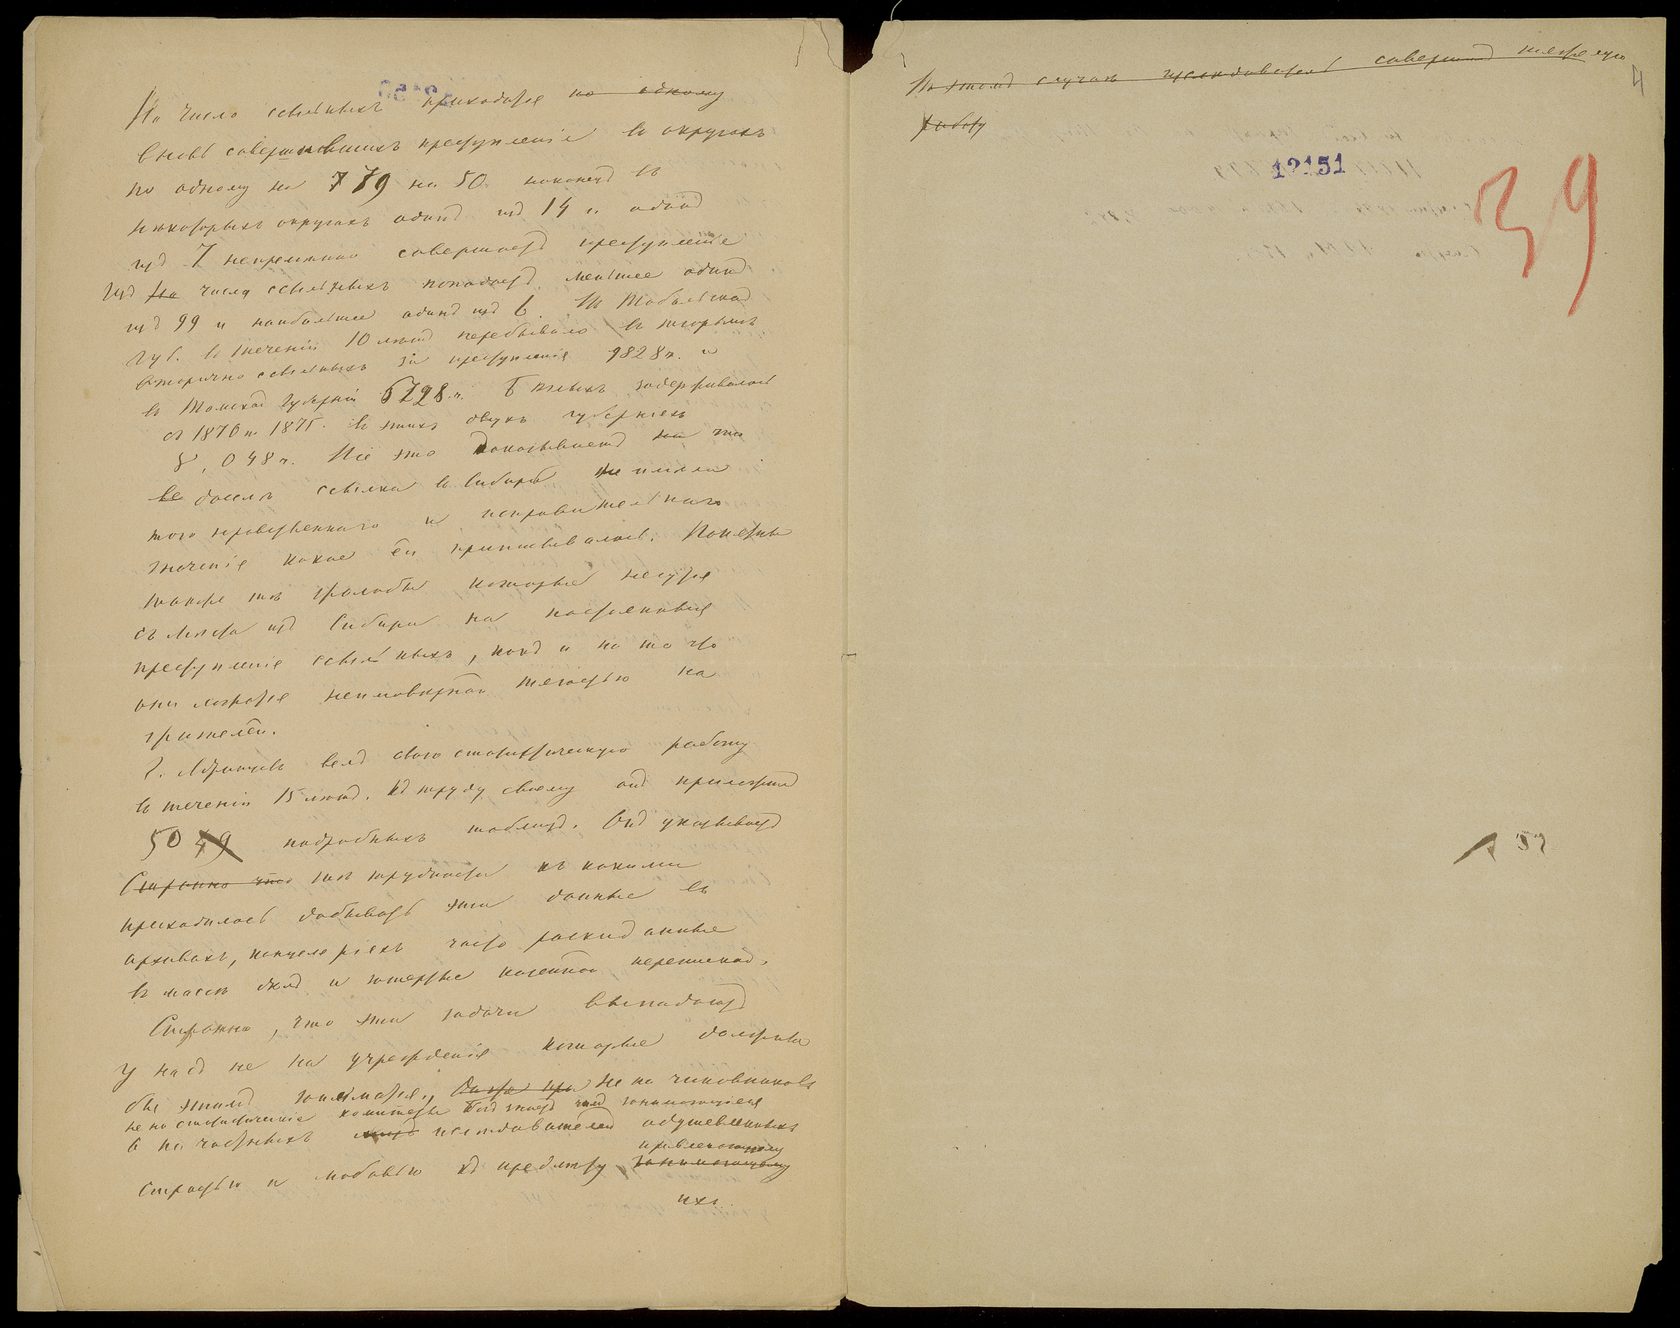 На число ссыльныхъ приходится по одному
вновь совершившихъ преступленіе въ округахъ
по одному на 79 на 50. наконецъ въ
нѣкоторыхъ округахъ одинъ изъ 14 и одинъ
изъ 7 непремѣнно совершаетъ преступленіе
Изъ На числа ссыльныхъ попадаетъ меньшее одинъ
изъ 99 и наибольшее одинъ изъ 6. Въ Тобольской
Губ. въ теченіи 10 лѣтъ перебывало въ тюрьмѣ
вторично ссыльныхъ за преступленія 9828 ч. и
въ Томской Губерніи 6798 ч. Бѣглыхъ задерживалось
съ 1870 по 1875. въ этихъ двухъ губерніяхъ
5,048 ч. Все это доказываетъ что
доселѣ ссылка въ Сибирь не имѣла
того нравственнаго и исправительнаго
значенія какое ей приписывалось. Понятны
также тѣ жалобы которыя несутся
съ мѣста изъ Сибири на постоянныя
преступленія ссыльныхъ, какъ и на то что
они ложатся неимовѣрной тягостью на
жителей.
велъ свою статистическую работу
въ теченіи 15 лѣтъ. Къ труду своему онъ приложилъ
50 49 подробныхъ таблицъ. Онъ указываетъ
Странно что тѣ трудности съ какими
приходилось добывать эти данныя въ
архивахъ, канцеляріяхъ часто раскиданные
въ массѣ дѣлъ и утертые казенной перепиской.
Странно, что эти задачи выпадаютъ
у насъ не на учрежденія которыя должны
бы этимъ заниматься, не на чиновниковъ
не на статистическіе комитеты Богъ знаетъ чѣмъ занимающіеся
а на частныхъ изслѣдователей одушевленныхъ
привлекающему
страстью и любовью къ предмету занимающему
ихъ.
Въ этомъ случаѣ изслѣдователь совершилъ тяжелую
работу
4
12151
39